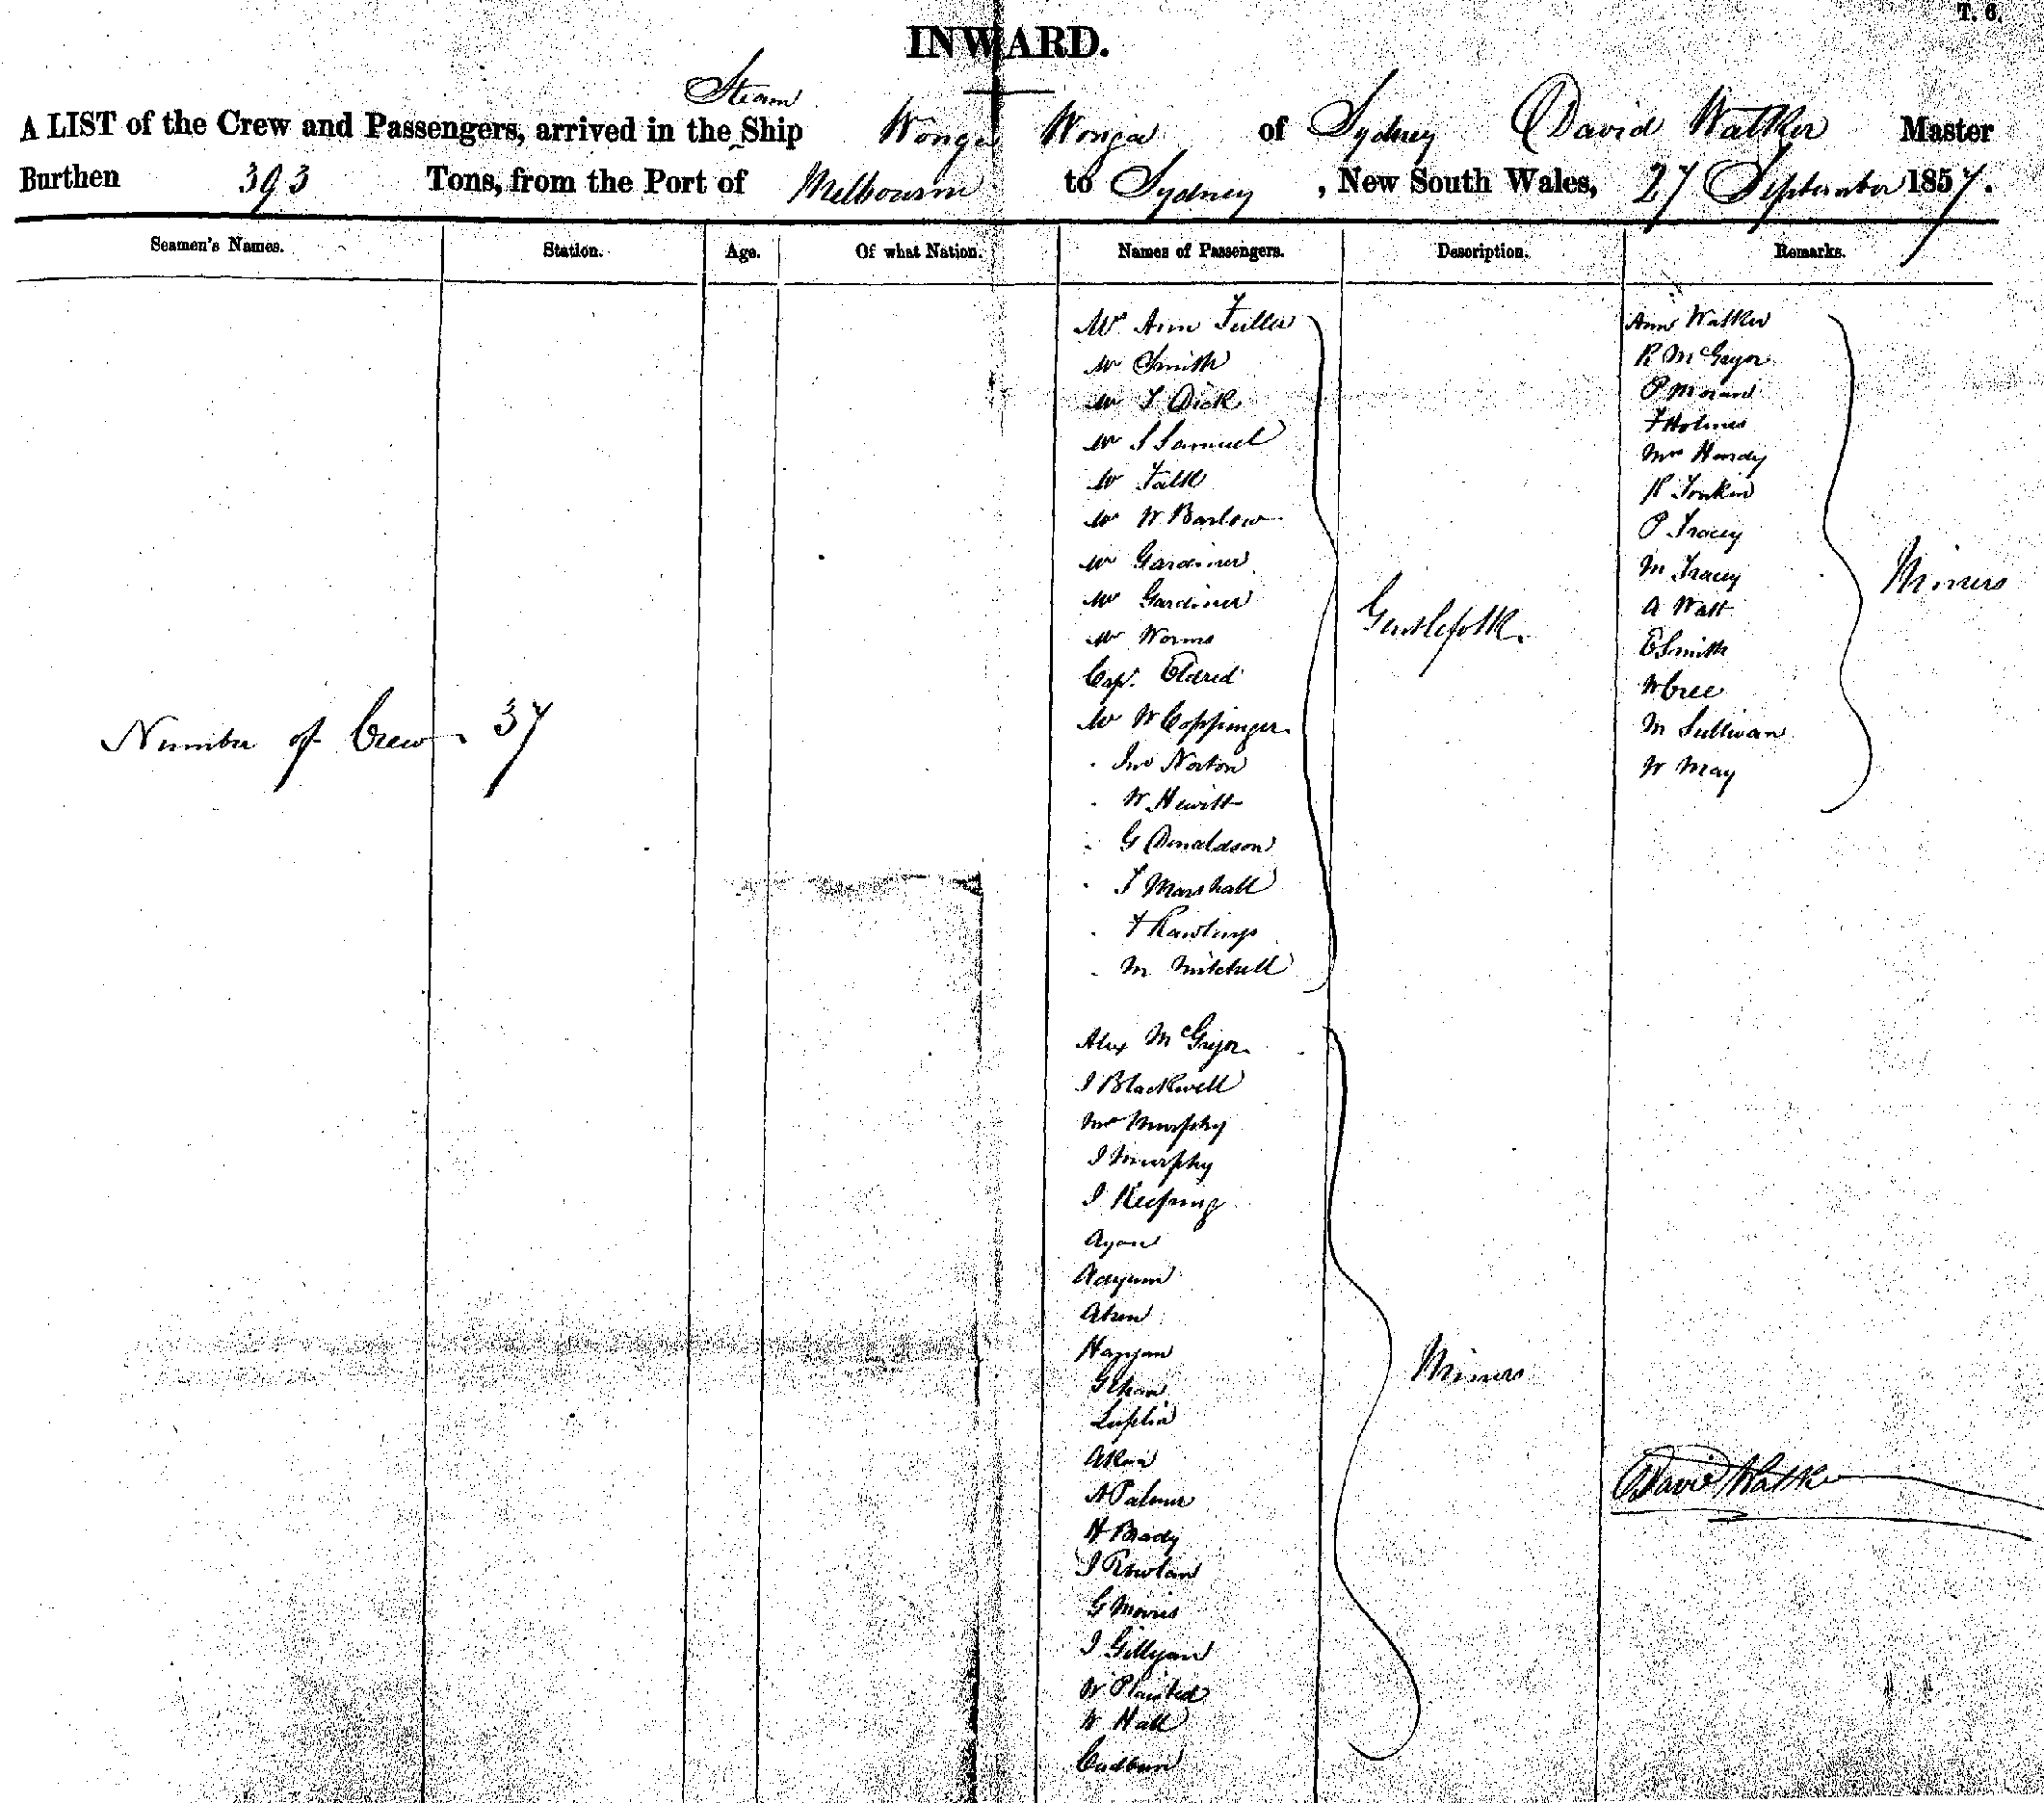 T. 6.
INWARD.
Steam
A LIST of the Crew and Passengers, arrived in the Ship Wonga Wonga of Sydney David Walker Master
Burthen 393 Tons, from the Port of Melbourne to Sydney, New South Wales, 27 September 1857.
Seamen's Names. Station. Age. Of what Nation. Names of Passengers. Description. Remarks.
Number of Crew. 37
Ann Fuller
Mr Smith
Mr J Dick
Mr S Samuel
Mr Falk
Mr W Barlow
Mr Gardiner
Mr Gardiner
Mr Worms
Cap. Eldred
Mr W Coppinger
Jno Norton
W Hewitt
G Donaldson
J Marshall
F Rawlings
M Mitchell
Gentlefolk.
Alex McGregor
J Blackwell
Mrs Murphy
J Murphy
J
Ayan
Atken
Hanjan
A Palmer
H Brady
J Rowlan
G Morris
J Gillyan
W Plaisted
W Hall
Miners
Ann Walker
R McGregor
P Morand
F Holmes
Mrs Hardy
R Tonkin
P Tracey
M Tracey
A Watt
E Smith
W Cree
M Sullivan
W May
Miners
David Walker